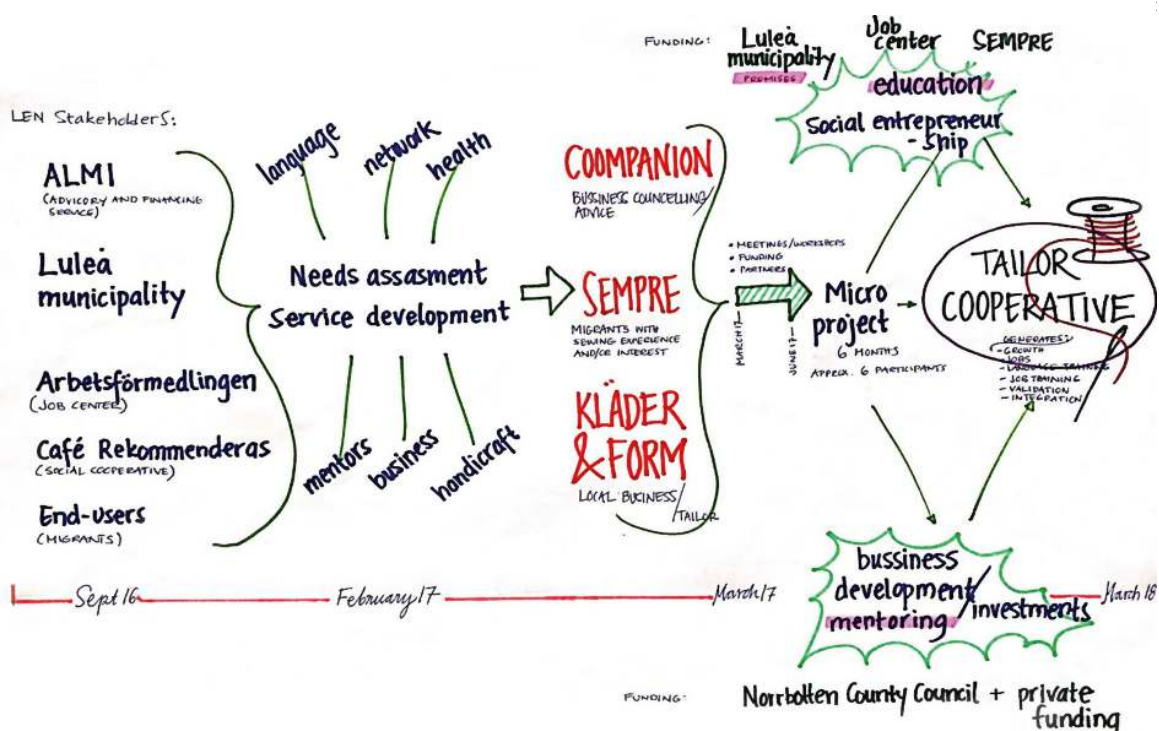 FUNDING:
Luleå
municipality
PREMISES
Job
center
SEMPRE
education
Social entrepreneur
-ship
LEN StakeholderS:
ALMI
(ADVISORY AND FINANCING
SERVICE)
Luleå
municipality
Arbetsförmedlingen
(JOB CENTER)
Café Rekommenderas
(SOCIAL COOPERATIVE)
End-users
(MIGRANTS)
language
network
health
Needs assasment
Service development
mentors
business
handicraft
COOMPANION
BUSSINESS COUNCELLING/
ADVICE
SEMPRE
MIGRANTS WITH
SEWING EXPERIENCE
AND/OR INTEREST
KLÄDER
&FORM
LOCAL BUSINESS/
TAILOR
• MEETINGS/WORKSHOPS
• FUNDING
• PARTNERS
MARCH 17
JUNE 17
Micro
project
6 MONTHS
APPROX. 6 PARTICIPANTS
TAILOR
COOPERATIVE
GENERATES:
-GROWTH
-JOBS
-LANGUAGE TRAINING
-JOB TRAINING
-VALIDATION
-INTEGRATION
Sept 16
February 17
March 17
March 18
bussiness
development/
mentoring
investments
FUNDING:
Norrbotten County Council + private
funding